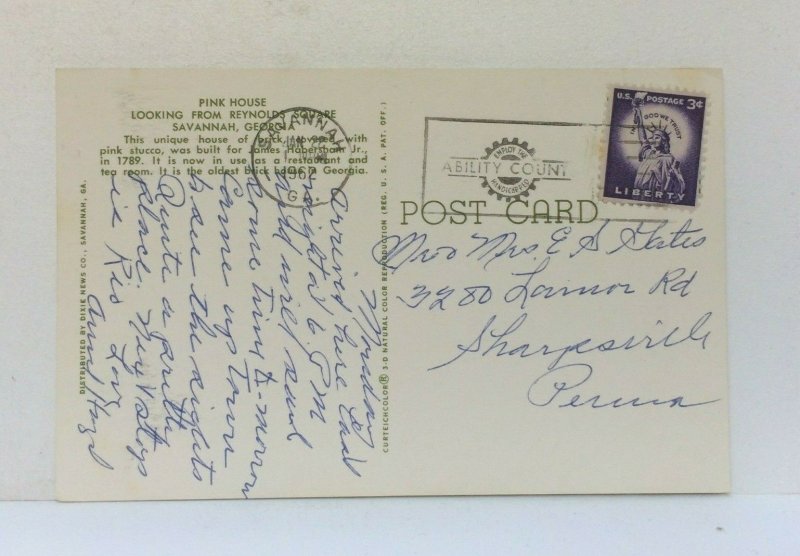 PINK HOUSE
LOOKING FROM REYNOLDS SQUARE
SAVANNAH, GEORGIA
This unique house of brick, covered with
pink stucco, was built for James Habersham Jr.,
in 1789. It is now in use as a restaurant and
tea room. It is the oldest brick house in Georgia.
DISTRIBUTED BY DIXIE NEWS CO., SAVANNAH, GA.
Monday
here
night at 6 P M
and will send
some time to-morrow
Came up town
to see the sights
Quite a pretty
place. Next stop
is Love
CURTEICHCOLOR® 3-D NATURAL COLOR REPRODUCTION (REG. U.S.A. PAT. OFF.)
SAVANNAH
196
G
EMPLOY THE
HANDICAPPED
ABILITY COUNT
U.S. POSTAGE 3¢
IN GOD WE TRUST
LIBERTY
POST CARD
Mr & Mrs. E
3280 Rd
Sharpsville
Penna